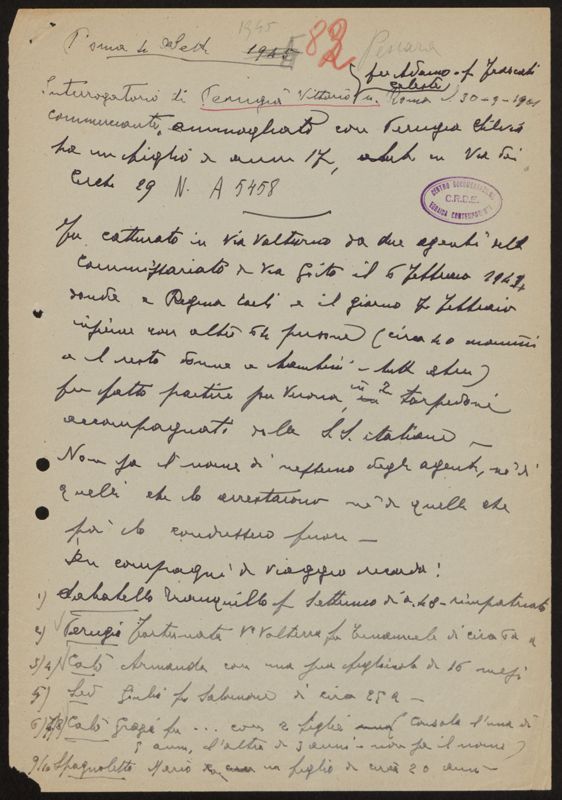 Roma 4 Sett 1945
1945
82
Pescara
Interrogatorio di Perugia Vittorio fu Adamo e f. Frascati Celeste n. Roma il 30-9-1901
commerciante, ammogliato con Perugia Silvia
ha un figlio di anni 17, abit. in Via dei
Cerchi 29 N. A 5458
CENTRO DOCUMENTAZIONE
C.R.D.E.
EBRAICA CONTEMPORANEA
Fu catturato in Via Volturno da due agenti del
Commissariato di Via Goito il 6 Febbraio 1944
donde a Regina Coeli e il giorno 7 Febbraio
insieme con altre 64 persone (circa 40 uomini
e il resto donne e bambini - tutti ebrei)
fu fatto partire per Verona, in 2 torpedoni
accompagnati dalla S.S. italiana -
Non sa il nome di nessuno degli agenti, nè di
quelli che lo arrestarono nè di quelli che
poi lo condussero fuori -
Dei compagni di viaggio ricorda:
1) Sabatello Tranquillo f. Settimio di a. 48 - rimpatriato
2) Perugia Fortunata Va Volterra fu Emanuele di circa 60 a
3) 4) Calò Armanda con una sua figlioletta di 15 mesi
5) Giulio fu Salomone di circa 25 a -
6) 7) 8) Calò Grazia fu ... con 2 figli (Consola l'una di
5 anni, l'altra di 3 anni - non sa il nome)
9) 10 Spagnoletto Mario con un figlio di circa 20 anni -